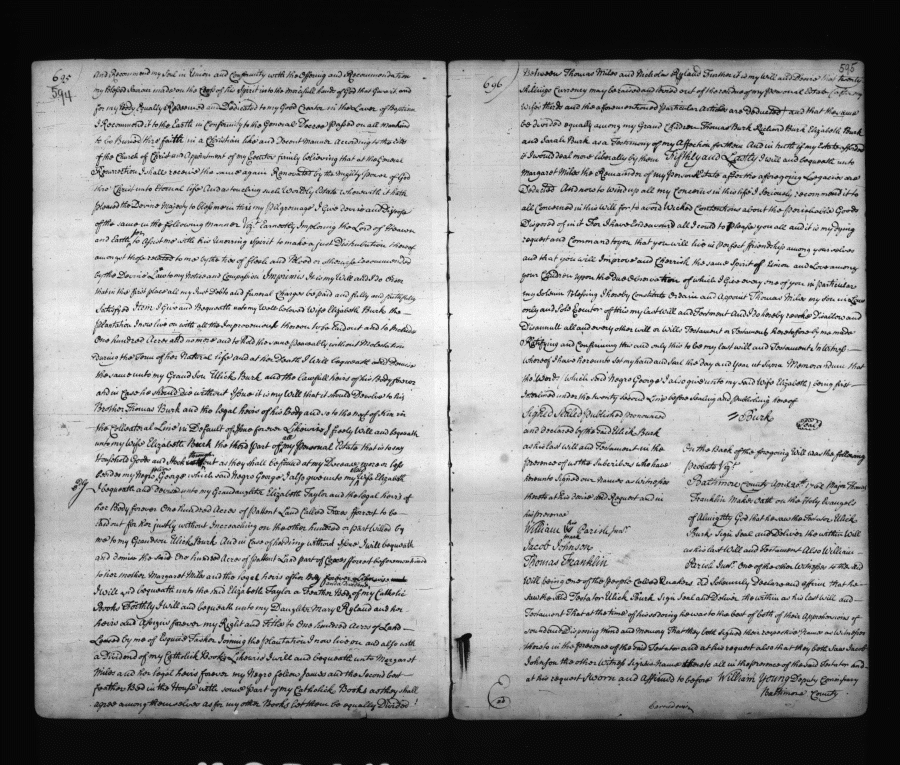 695
594
and Recommend my Soul in Union and Conformity with the Offering and Recommendation
my Blessed Saviour made on the Cross of his Spirit into the Mercifull hands of God that Gave it and
for my Body Equally Redeemed and Dedicated to my Good Creator in the Laver of Baptism
I Recommend it to the Earth in Conformity to the General Decree Passed on all Mankind
to be Buried there faith in a Christian like and Decent manner According to the Rites
of the Church of Christ and Appointment of my Executor firmly believing that at the General
Resurrection I shall receive the same again Renovated by the Mighty Power of God
thro Christ unto Eternal life And as touching such Worldly Estate wherewith it hath
pleased the Devine Majesty to bless me in this my Pilgrimage I Give devise and dispose
of the same in the following Manner Viz Earnestly Imploring the Lord of Heaven
and Earth for to Assist me with his Unerring Spirit to make a just Distribution thereof
amongst those related to me by the ties of flesh and Blood or otherwise recommended
by the Devine Law to my Notice and Compassion Imprimis It is my Will and I do Order
that in the first place all my Just Debts and funeral Charges be paid and fully and faithfully
Satisfied Item I Give and Bequeath unto my Well beloved Wife Elizabeth Burk the
plantation I now live on with all the Improvements thereon to be laid out and to Include
One Hundred Acres and no more and to hold the same peaceably without Molestation
during the Term of her Natural life and at her Death I Will bequeath and Demise
the same unto my Grand Son Ulick Burk and the lawfull heirs of his Body forever
and in Case he should die without Issue it is my Will that it should Devolve to his
Brother Thomas Burk and the legal heirs of his Body and so to the next of Kin in
the Collateral Line in Default of Issue forever Likewise I freely Will and bequeath
unto my Wife Elizabeth Burk the third Part of all my Personal Estate that is to say
Household Goods and Stock without as they shall be found at my Decease more or less
besides my Negro George which said Negro George I also give unto my said Wife Elizabeth
I bequeath and devise unto my Grandaughter Elizabeth Taylor and the legal heirs of
her Body forever One Hundred Acres of Pattent Land Called Foxes forrest to be
laid out for her justly without Increaching on the other hundred or part Willed by
me to my Grandson Ulick Burk And in Case of her dying without Issue I will bequeath
and demise the said One hundred Acres of Pattent Land part of Foxes forrest beforementiond
to her mother Margaret Miles and the legal heirs of her Body forever Likewise
I will and bequeath unto the said Elizabeth Taylor a Feather Bed of my Catholic
Books Forthly I will and bequeath unto my Daughter Mary Ryland and her
heirs and Assigns forever my Right and Title to One Hundred Acres of Land
Leased by me of Esquire Tasker Joining the plantation I now live on and also with
a Dividend of my Catholick Books Likewise I will and bequeath unto Margaret
Miles and her legal heirs forever my Negro fellow James and the Second best
Feather Bed in the House with some part of my Catholick Books as they shall
agree among themselves as for my other Books let them be equally Divided
696
595
Between Thomas Miles and Nicholas Ryland Further it is my will and Desire that twenty
Shillings Currency may be raised and bored out of the value of my Personal Estate
Wifes thirds and the aforementioned Particular Articles are Deducted and that the same
be divided equally among my Grand Children Thomas Burk Richard Burk Elizabeth Burk
and Sarah Burk as a Testimony of my Affection for them And in truth if my Estate afforded
I would deal more liberally by them Fifthly and Lastly I will and bequeath unto
Margaret Miles the Remainder of my Personal Estate after the aforegoing Legacies are
Deducted And now to Wind up all my Concerns in this life I seriously recommend it to
all Concerned in this Will for to avoid Wicked Contentions about the Perishable Goods
Disposed of in it For I have Endeavour'd all I could to Please you all and it is my dying
request and Command to you that you will live in Perfect friendship among yourselves
and that you will Improve and Cherish the same Spirit of Union and Love among
your Children upon the Due Observation of which I Give every one of you in particular
my Solemn Blessing I hereby Constitute Ordain and Appoint Thomas Miles my Son in Law
only and Sole Executor of this my Last Will and Testament And I do hereby revoke Disallow and
Disannull all and every other Will or Wills Testament or Testaments heretofore by me made
Ratifying and Confirming this and only this to be my last will and Testament In Witness
whereof I have hereunto set my hand and Seal the day and year as Supra Memorandum that
the Words (which said Negro George I also give unto my said Wife Elizabeth) being first
Interlined under the twenty Second Line before Sealing and publishing thereof
Signed Sealed Published Pronounced
and declared by the said Ulick Burk
as his last Will and Testament in the
presence of us the Subscribers who have
hereunto Signed our Names as Witnesses
thereto at his Desire and Request and in
his presence
William Parish Junr.
mark
Jacob Johnson
Thomas Franklin
Burk
Seal
On the Back of the foregoing Will was the following
Probate Vizt.
Baltimore County April 20th 1762 Major Thomas
Franklin Makes Oath on the Holy Evangels
of Almighty God that he saw the Testator Ulick
Burk Sign Seal and Deliver the within Will
as his last Will and Testament Also William
Parish Junr. One of the other Witnesses to the said
Will being one of the People Called Quakers did Solemnly Declare and affirm that he
saw the said Testator Ulick Burk Sign Seal and Deliver the within as his last Will and
Testament That at the time of his so doing he was to the best of both of their Apprehensions of
sound and Disposing Mind and Memory That they both Signed their respective Names as Witnesses
thereto in the presence of the said Testator and at his request also that they both Saw Jacob
Johnson the other Witness Sign his Name thereto all in the presence of the said Testator and
at his request Sworn and Affirmd to before William Young Deputy Commissary
Baltimore County